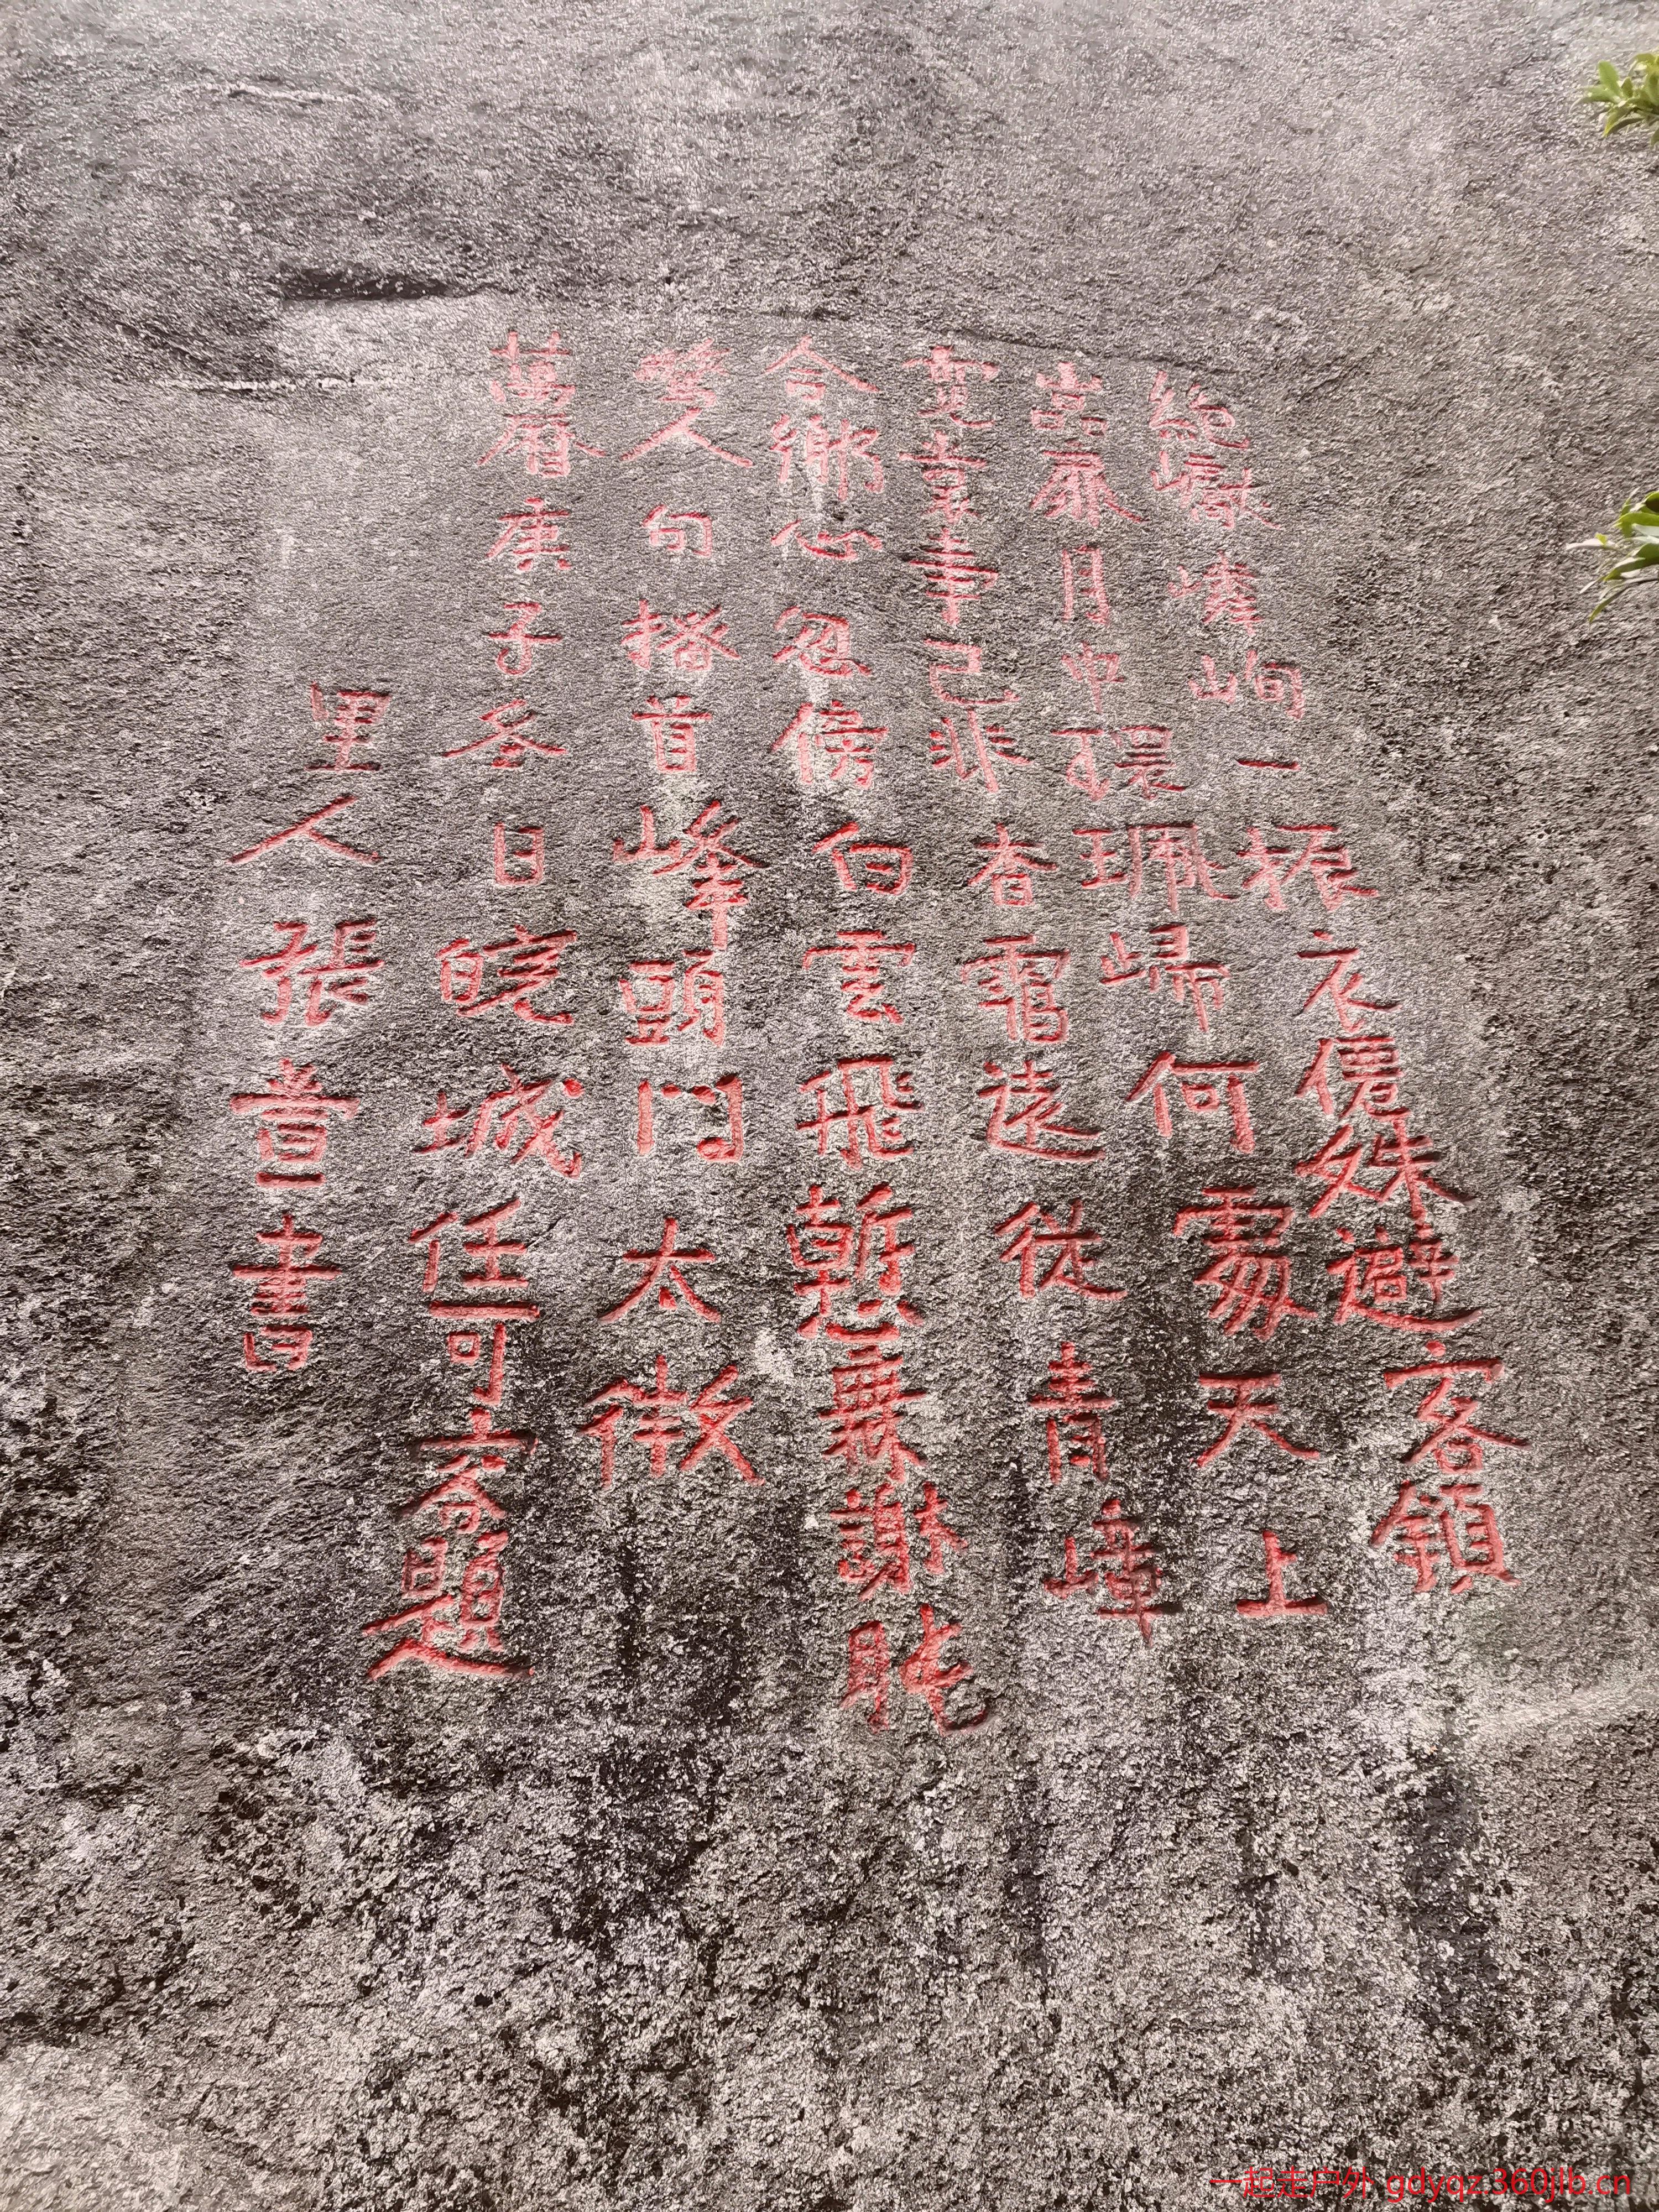 絕巘嶙峋一振衣僊姝避客鎖
嵓扉月中環珮歸何處天上
霓裳事已非杳靄遠從青嶂
合鄉心忽傍白雲飛慙無謝朓
驚人句搔首峰頭問太微
萬曆庚子冬日皖城任可容題
里人張書
一起走户外 gdyqz.360jlb.cn